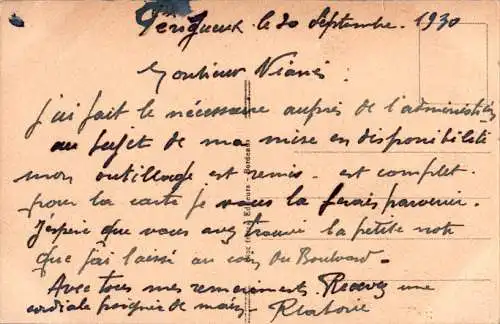 Périgueux le 20 Septembre. 1930
Monsieur
J'ai fait le nécessaire auprès de l'administration
au sujet de ma mise en disponibilité
mon outillage est remis. est complet.
pour la carte je vous la ferais parvenir.
J'espère que vous avez trouvé la petite note
que j'ai laissé au coin du Boulvard.
Avec tous mes remerciments. Recevez une
cordiale poignée de main.
Editeurs - Bordeaux